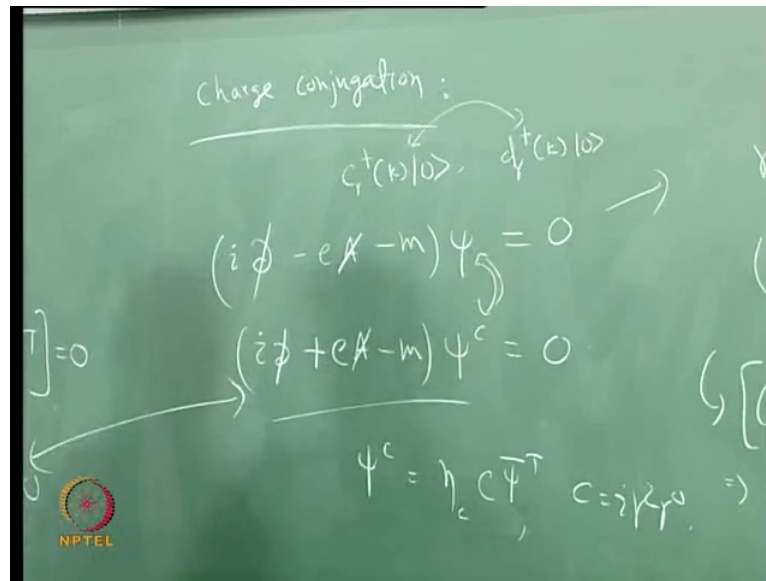 Charge conjugation :
c_r^†(k)|0> , d_r^†(k)|0>
(i∂̸ - eA̸ - m) ψ = 0
(i∂̸ + eA̸ - m) ψ^c = 0
]=0
ψ^c = η_c C ψ̄^T , C = iγ²γ⁰ . ⇒
NPTEL